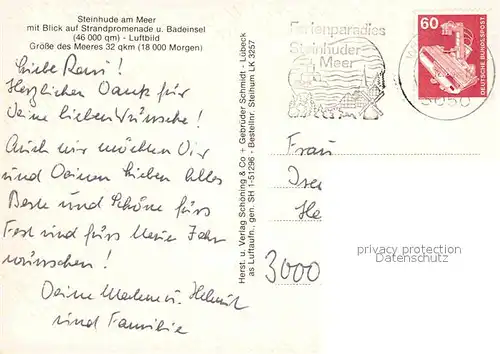 Steinhude am Meer
mit Blick auf Strandpromenade u. Badeinsel
(46 000 qm) - Luftbild
Größe des Meeres 32 qkm (18 000 Morgen)
Liebe Rosi!
Herzlichen Dank für
Deine lieben Wünsche!
Auch wir möchten Dir
und Deinen Lieben alles
Beste und Schöne fürs
Fest und fürs Neue Jahr
wünschen!
Deine Marlene u. Helmut
und Familie
Herst. u. Verlag Schöning & Co + Gebrüder Schmidt - Lübeck
as Luftaufn., gen. SH 1-51296 - Bestellnr. Steihum LK 3257
Ferienparadies
Steinhuder
Meer
60
DEUTSCHE BUNDESPOST
3050
Frau
3000
privacy protection